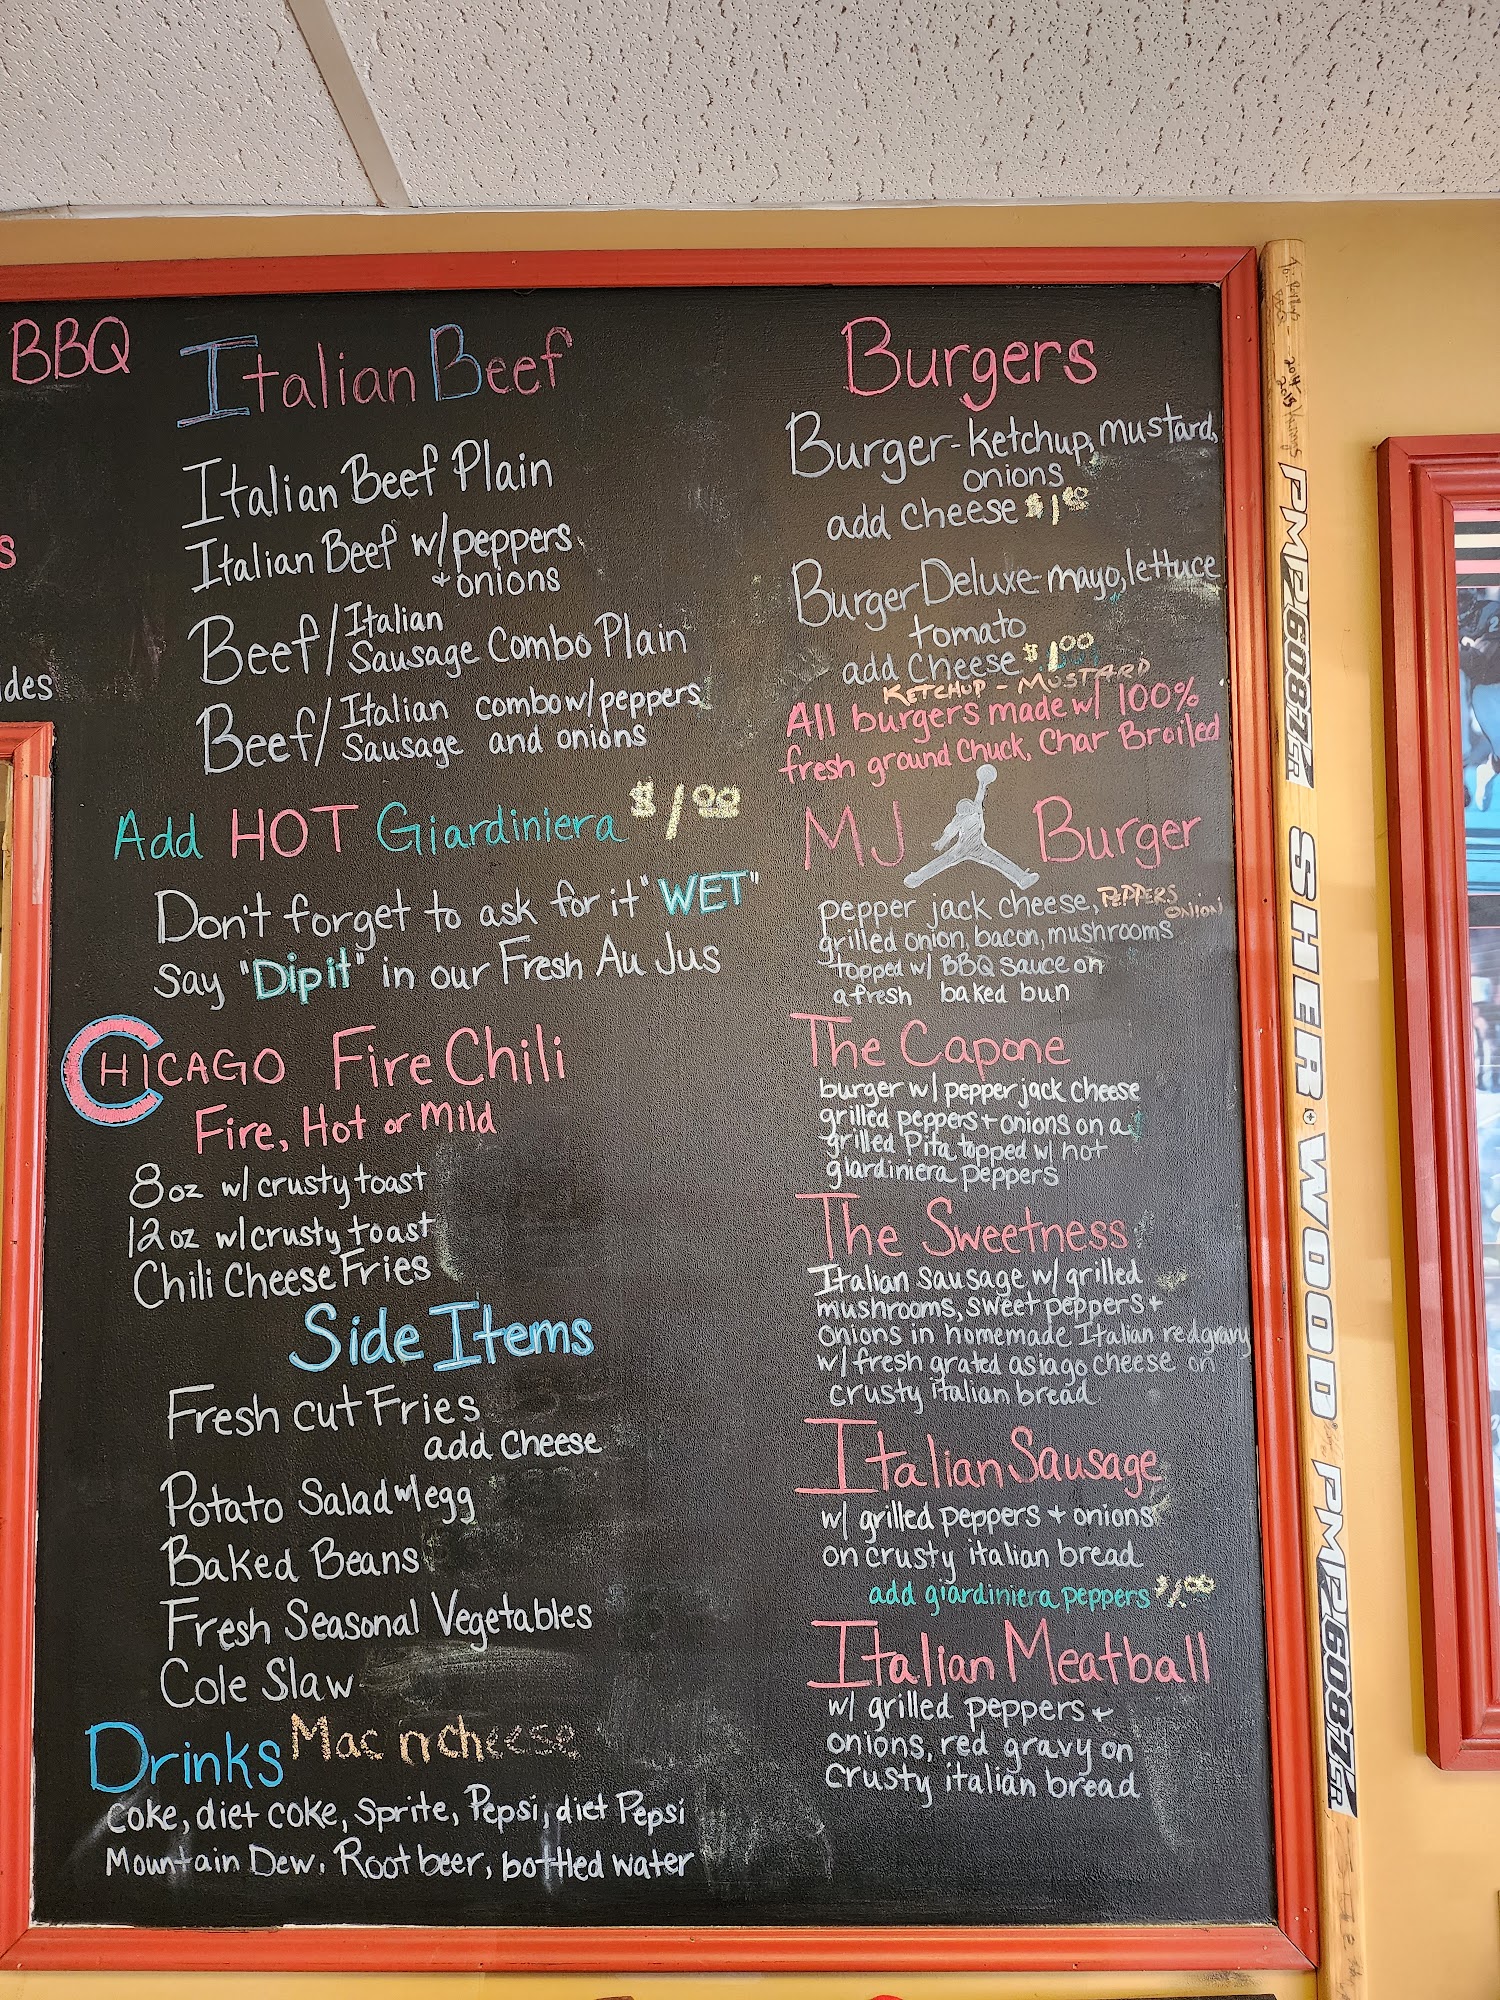 BBQ
s
ides
Italian Beef
Italian Beef Plain
Italian Beef w/peppers
+ onions
Beef/Italian
Sausage Combo Plain
Beef/Italian combo w/peppers
Sausage and onions
Add HOT Giardiniera $1.00
Don't forget to ask for it "WET"
say "Dip it" in our Fresh Au Jus
CHICAGO Fire Chili
Fire, Hot or Mild
8oz w/ crusty toast
12oz w/crusty toast
Chili Cheese Fries
Side Items
Fresh cut Fries
add Cheese
Potato Salad w/egg
Baked Beans
Fresh Seasonal Vegetables
Cole Slaw
Mac n cheese
Drinks
Coke, diet coke, Sprite, Pepsi, diet Pepsi
Mountain Dew, Root beer, bottled water
Burgers
Burger - Ketchup, mustard,
onions
add Cheese $1.00
Burger Deluxe - mayo, lettuce
tomato
add Cheese $1.00
KETCHUP - MUSTARD
All burgers made w/ 100%
fresh ground Chuck, Char Broiled
MJ Burger
pepper jack cheese, PEPPERS
ONION
grilled onion, bacon, mushrooms
topped w/ BBQ sauce on
a fresh baked bun
The Capone
burger w/ pepper jack Cheese
grilled peppers + onions on a
grilled Pita topped w/ hot
giardiniera peppers
The Sweetness
Italian Sausage w/ grilled
mushrooms, sweet peppers +
onions in homemade Italian red gravy
w/ fresh grated asiago cheese on
crusty italian bread
Italian Sausage
w/ grilled peppers + onions
on crusty italian bread
add giardiniera peppers $1.00
Italian Meatball
w/ grilled peppers +
onions, red gravy on
crusty italian bread
PMP 6087 GR
SHER-WOOD
PMP 6087 GR